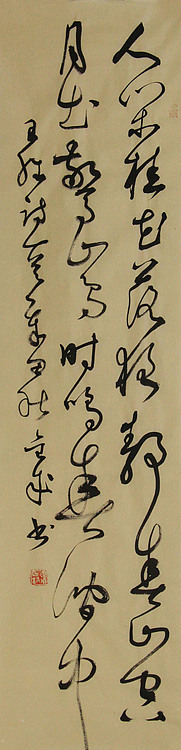 人闲桂花落夜静春山空
月出惊山鸟时鸣春涧中
王维诗一 秋 书